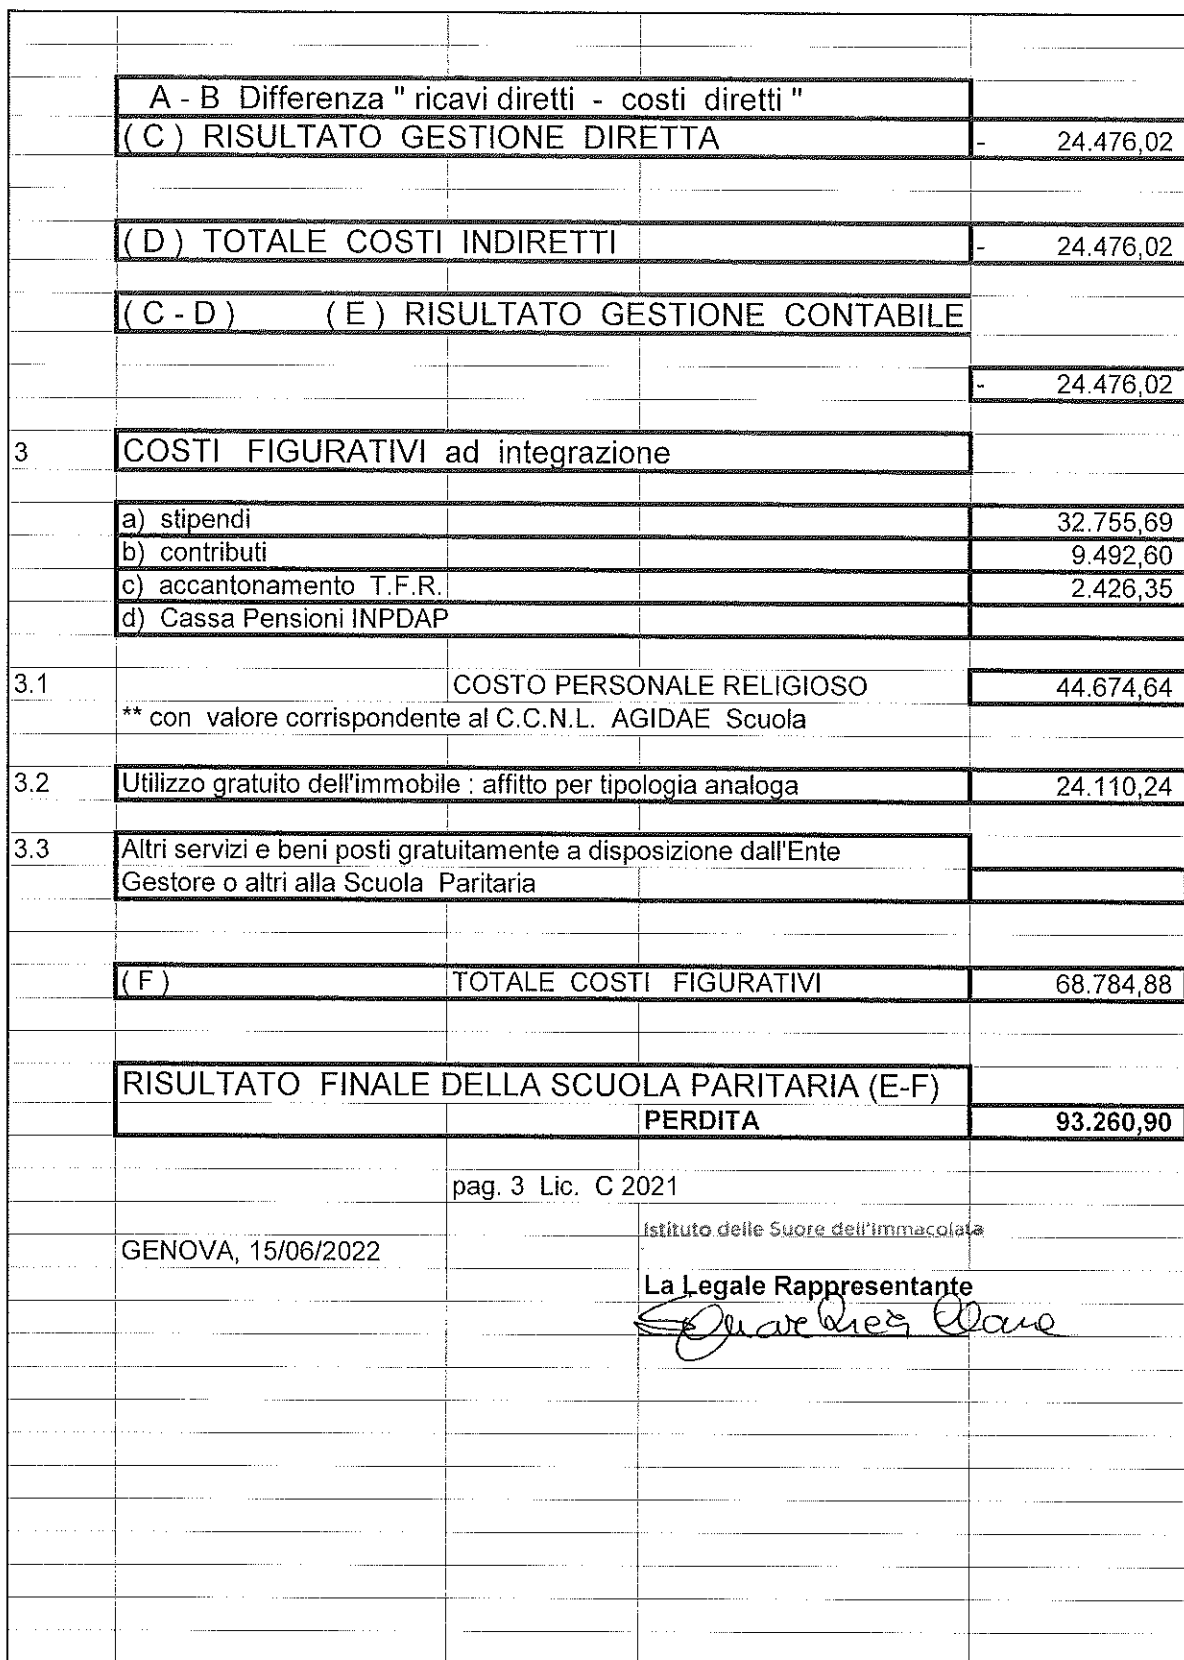 A - B Differenza " ricavi diretti - costi diretti "
( C ) RISULTATO GESTIONE DIRETTA - 24.476,02
( D ) TOTALE COSTI INDIRETTI - 24.476,02
( C - D ) ( E ) RISULTATO GESTIONE CONTABILE
- 24.476,02
3 COSTI FIGURATIVI ad integrazione
a) stipendi 32.755,69
b) contributi 9.492,60
c) accantonamento T.F.R. 2.426,35
d) Cassa Pensioni INPDAP
3.1 COSTO PERSONALE RELIGIOSO 44.674,64
** con valore corrispondente al C.C.N.L. AGIDAE Scuola
3.2 Utilizzo gratuito dell'immobile : affitto per tipologia analoga 24.110,24
3.3 Altri servizi e beni posti gratuitamente a disposizione dall'Ente
Gestore o altri alla Scuola Paritaria
( F ) TOTALE COSTI FIGURATIVI 68.784,88
RISULTATO FINALE DELLA SCUOLA PARITARIA (E-F)
PERDITA 93.260,90
pag. 3 Lic. C 2021
Istituto delle Suore dell'Immacolata
GENOVA, 15/06/2022
La Legale Rappresentante